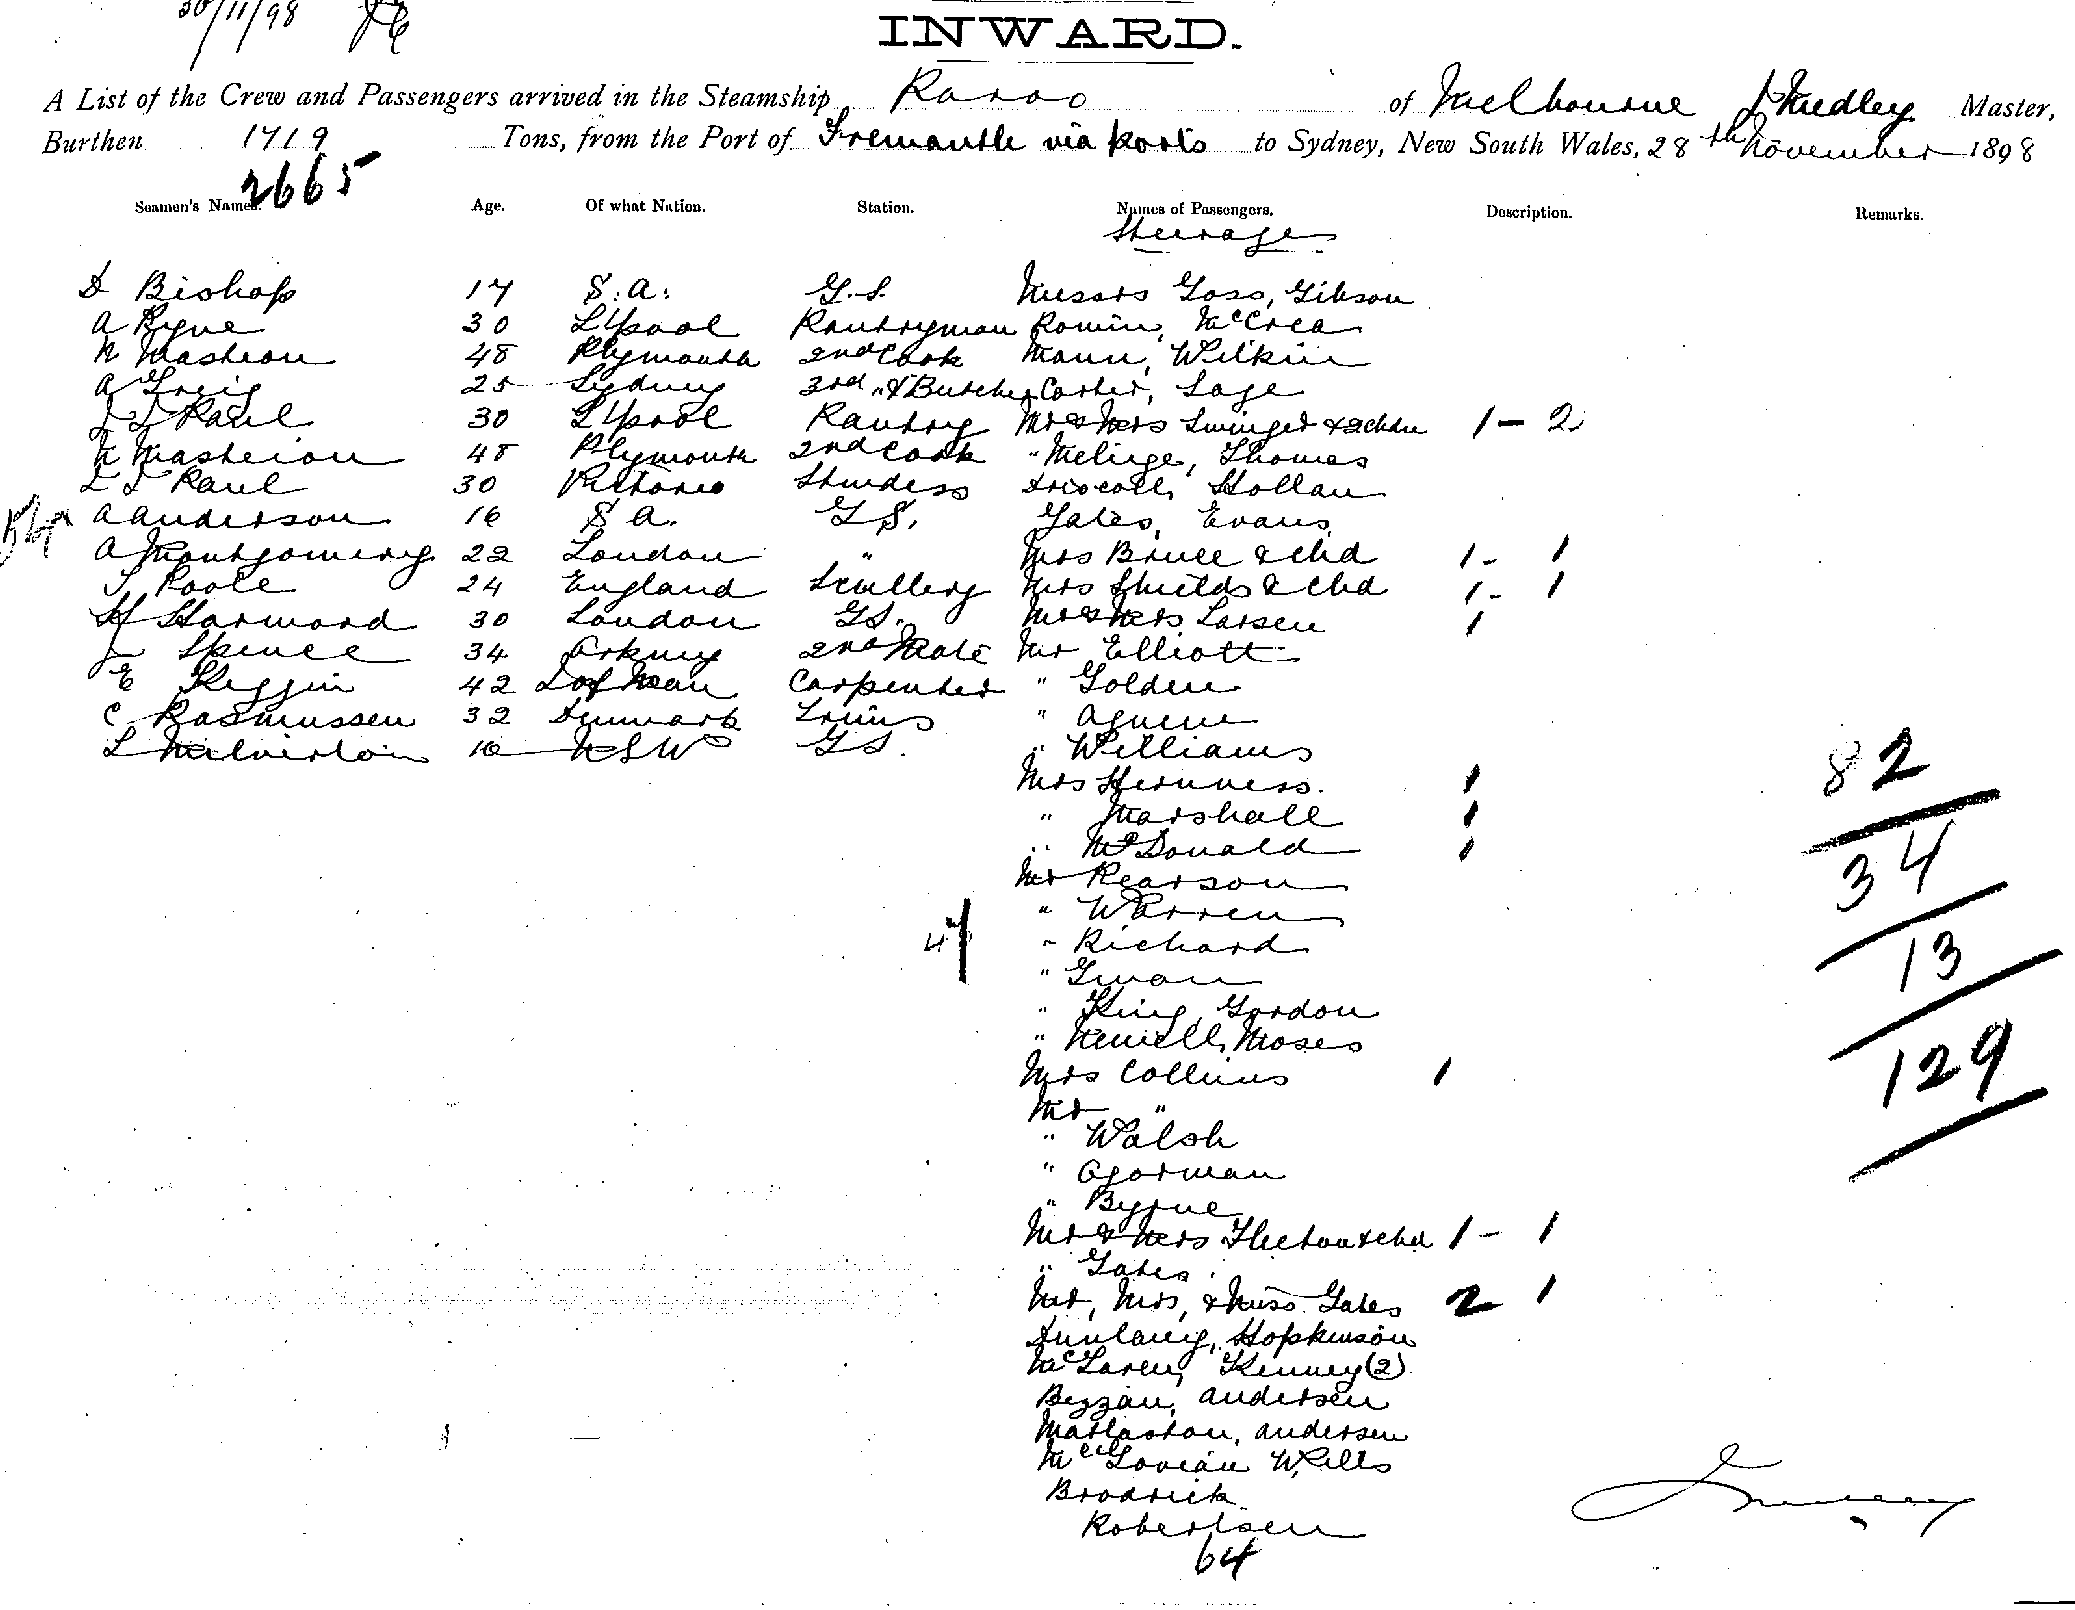 30/11/98
INWARD.
A List of the Crew and Passengers arrived in the Steamship Karoo of Melbourne J Medley Master,
Burthen 1719 Tons, from the Port of Fremantle via ports to Sydney, New South Wales, 28th November 1898
2665
Seamen's Names. Age. Of what Nation. Station. Names of Passengers. Description. Remarks.
Steerage
D Bishop 17 S.A. G.S. Messrs Goss, Gibson
A Pyne 30 L'pool Pantryman Romin, McCrea
N Masheon 48 Plymouth 2nd Cook Mann, Wilkin
A Greig 25 Sydney 3rd " & Butcher Carter, Sage
L J Paul 30 L'pool Pantry Mr & Mrs Swinger & 2 chdn 1 - 2
N Masheion 48 Plymouth 2nd Cook " Melinge, Thomas
L J Paul 30 Victoria Stewdess Driscoll, Hollan
A Anderson 16 S A. G S. Gates, Evans
A Montgomery 22 London " Mrs Bruce & chd 1 - 1
T Poole 24 England Scullery Mrs Shields & chd 1 - 1
H Harwood 30 London G S. Mr & Mrs Larsen 1
J Spence 34 Orkney 2nd Mate Mr Elliott
E Keggin 42 I of Man Carpenter " Golden
C Rasmussen 32 Denmark Trims " Agnew
L Milverton 16 NSW G S. " Williams
Mrs Herness. 1
82
" Marshall 1
" McDonald 1
34
Mr Pearson
" Warren
47
" Richard
13
" Gwan
" King, Gordon
" Newell, Moses
Mrs Collins 1
129
Mr "
" Walsh
" Ogorman
" Byrne
Mr & Mrs Fleeton & chd 1 - 1
" Gates
Mr, Mrs, & Miss Gates 2 1
Dunlavey, Hopkinson
McLaren, Kenney (2)
Bezzan, Andersen
Marlaston, Andersen
McGovian Wills
Brodrick
Robertsen
64